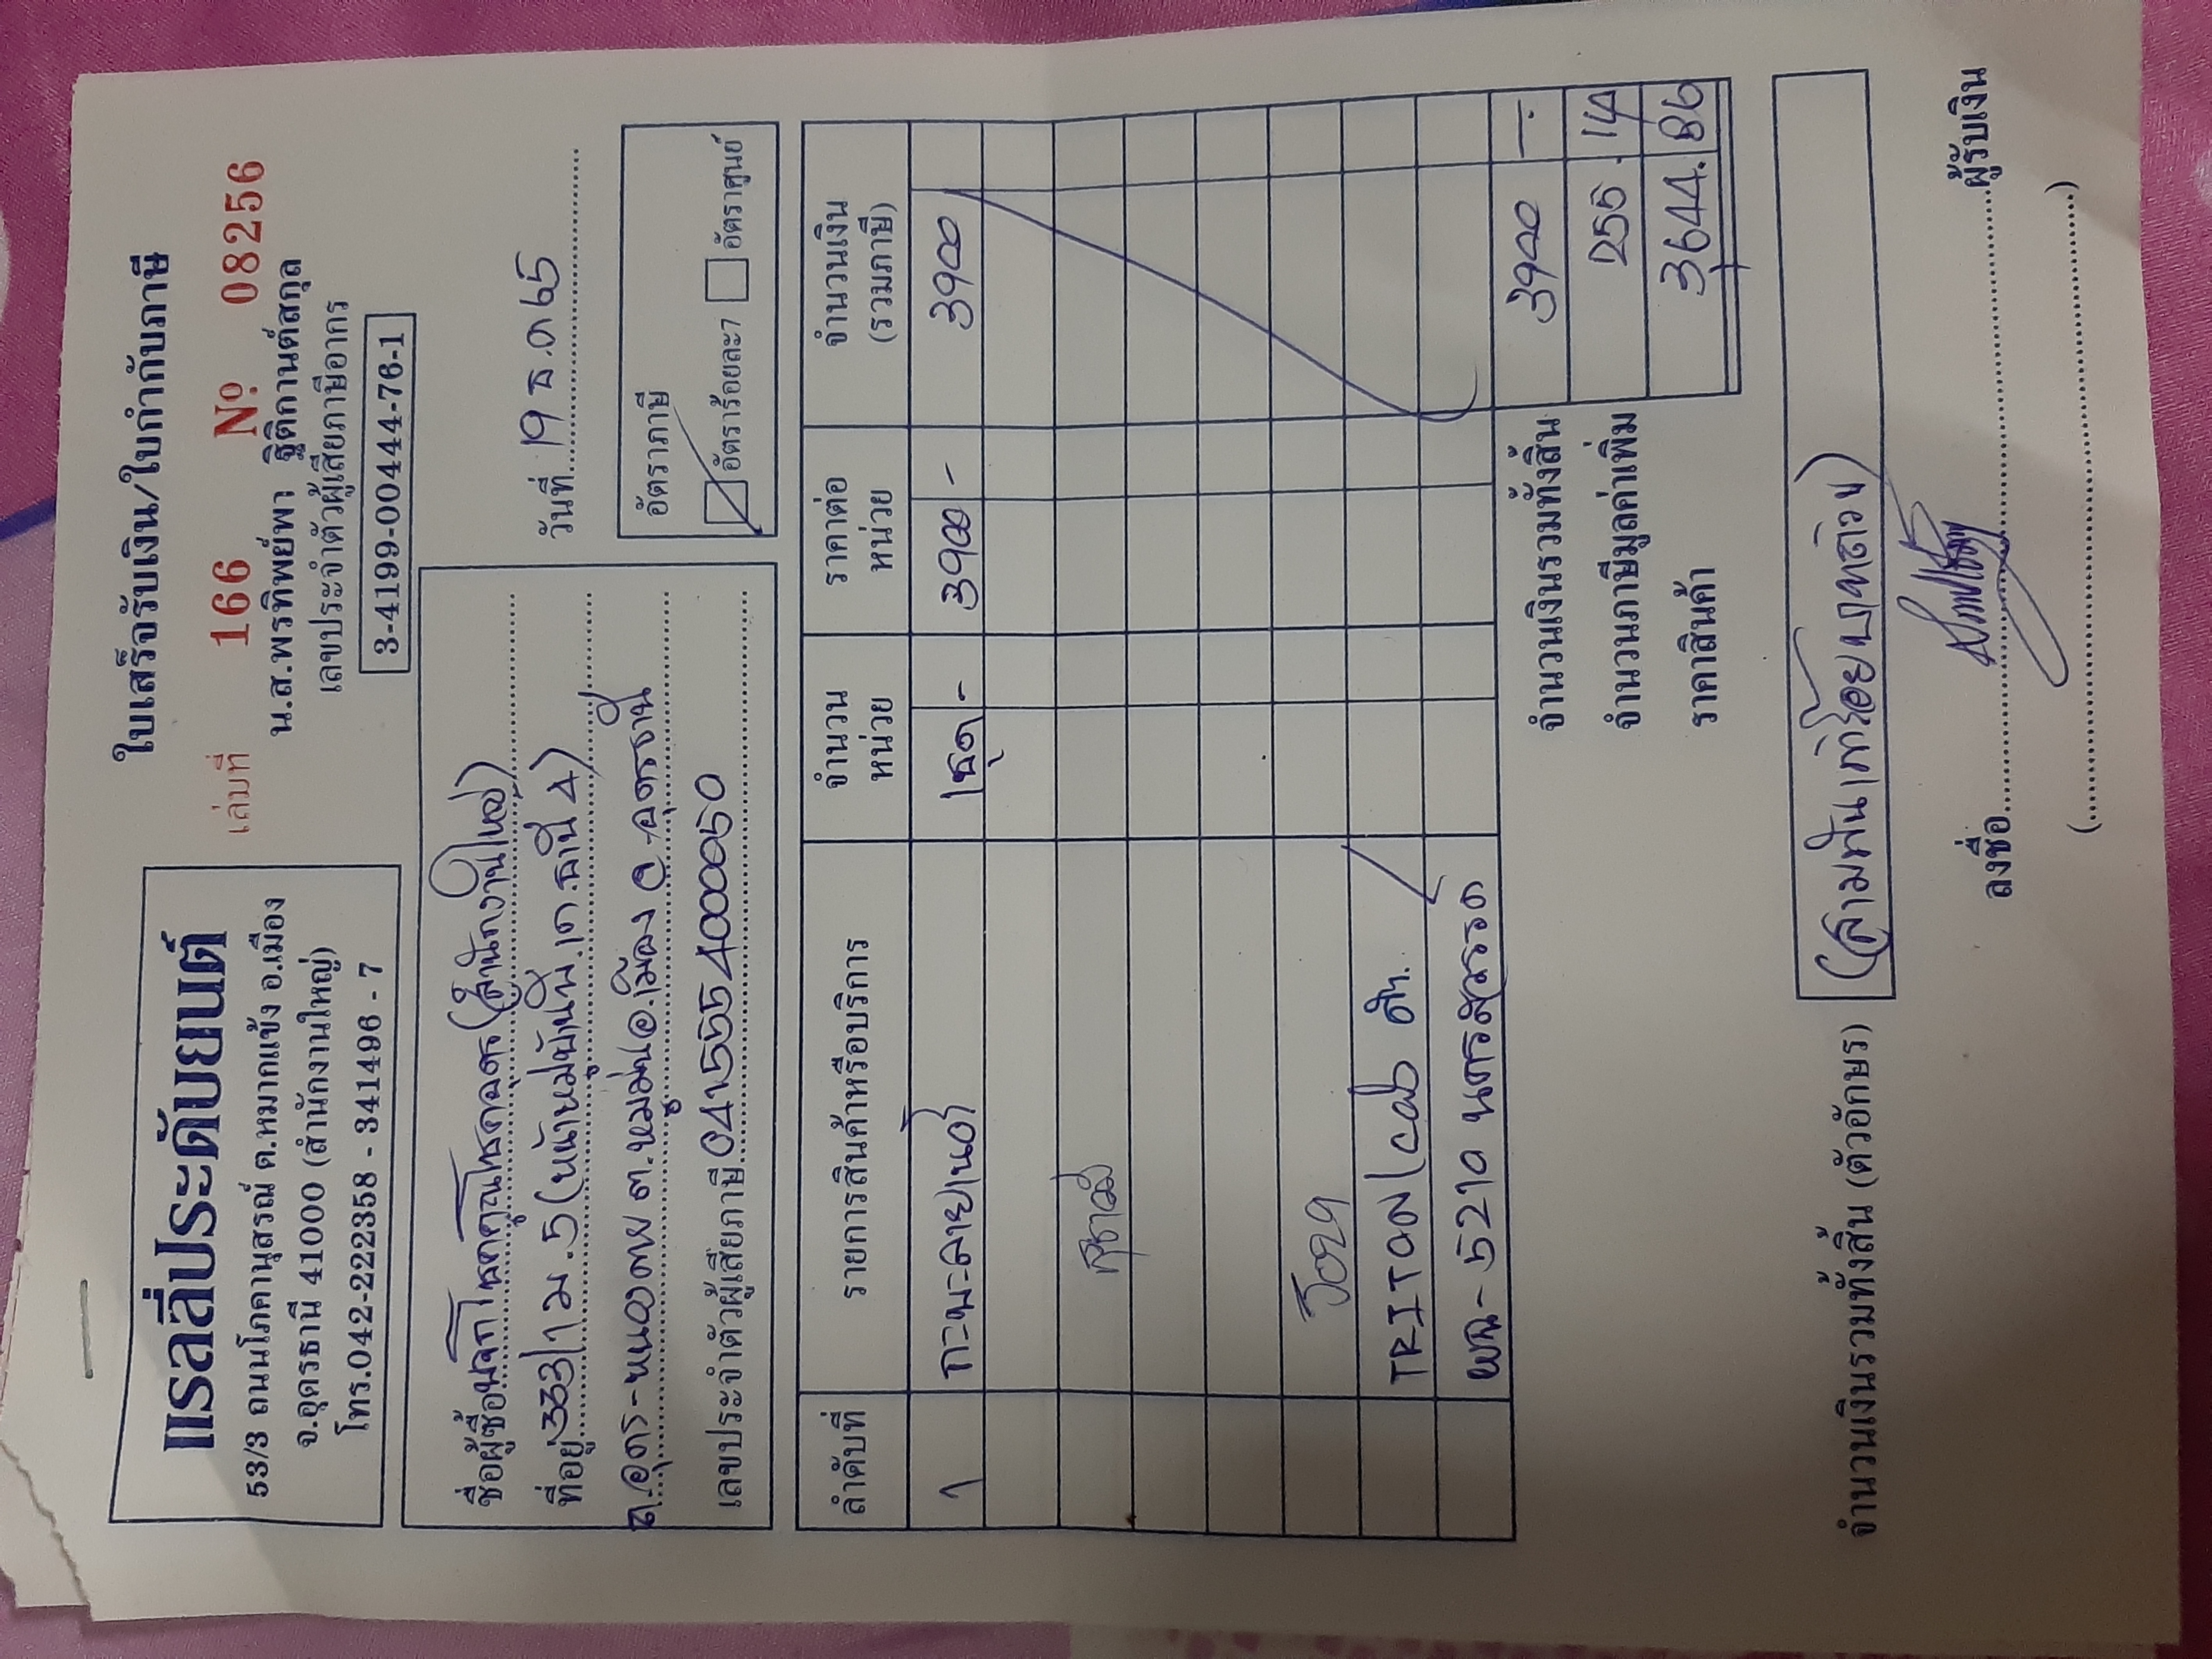 แรลลี่ประดับยนต์
53/3 ถนนโภคานุสรณ์ ต.หมากแข้ง อ.เมือง
จ.อุดรธานี 41000 (สำนักงานใหญ่)
โทร.042-222358 - 341496 - 7
ใบเสร็จรับเงิน/ใบกำกับภาษี
เล่มที่ 166 Nº 08256
น.ส.พรทิพย์พา ฐิติกานต์สกุล
เลขประจำตัวผู้เสียภาษีอากร
3-4199-00444-76-1
ชื่อผู้ซื้อ หจก โชคคูณโชคอุดร (สำนักงานใหญ่)
ที่อยู่ 333/1 ม.5 (หน้าหมู่บ้าน พี.เค.ธานี 4)
ถ.อุดร-หนองคาย ต.หมูม่น อ.เมือง จ.อุดรธานี
เลขประจำตัวผู้เสียภาษี 0415554000050
วันที่ 19 ธ.ค 65
อัตราภาษี
อัตราร้อยละ7 อัตราศูนย์
ลำดับที่ รายการสินค้าหรือบริการ จำนวนหน่วย ราคาต่อหน่วย จำนวนเงิน (รวมภาษี)
1 1ชุด - 3900 - 3900
TRITON
ผฉ - 5210 นครสวรรค์
จำนวนเงินรวมทั้งสิ้น 3900 -
จำนวนภาษีมูลค่าเพิ่ม 255.14
ราคาสินค้า 3644.86
จำนวนเงินรวมทั้งสิ้น (ตัวอักษร) (สามพันเก้าร้อยบาทถ้วน)
ลงชื่อ ผู้รับเงิน